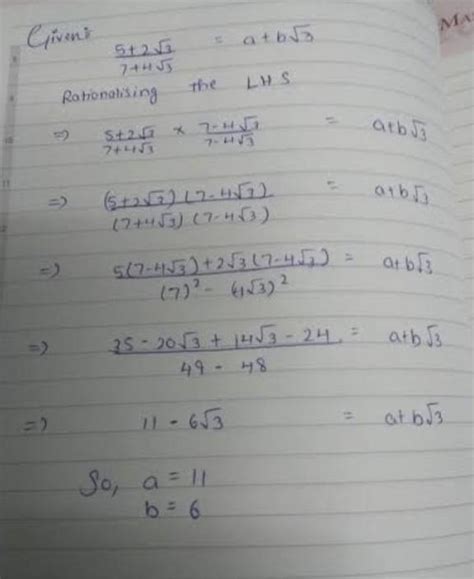 Given:
(5+2√3)/(7+4√3) = a+b√3
Rationalising the LHS
=> (5+2√3)/(7+4√3) × (7-4√3)/(7-4√3) = a+b√3
=> (5+2√3)(7-4√3)/(7+4√3)(7-4√3) = a+b√3
=> 5(7-4√3)+2√3(7-4√3)/(7)² - (4√3)² = a+b√3
=> 35-20√3+14√3-24/49-48 = a+b√3
=> 11-6√3 = a+b√3
So, a = 11
b = 6